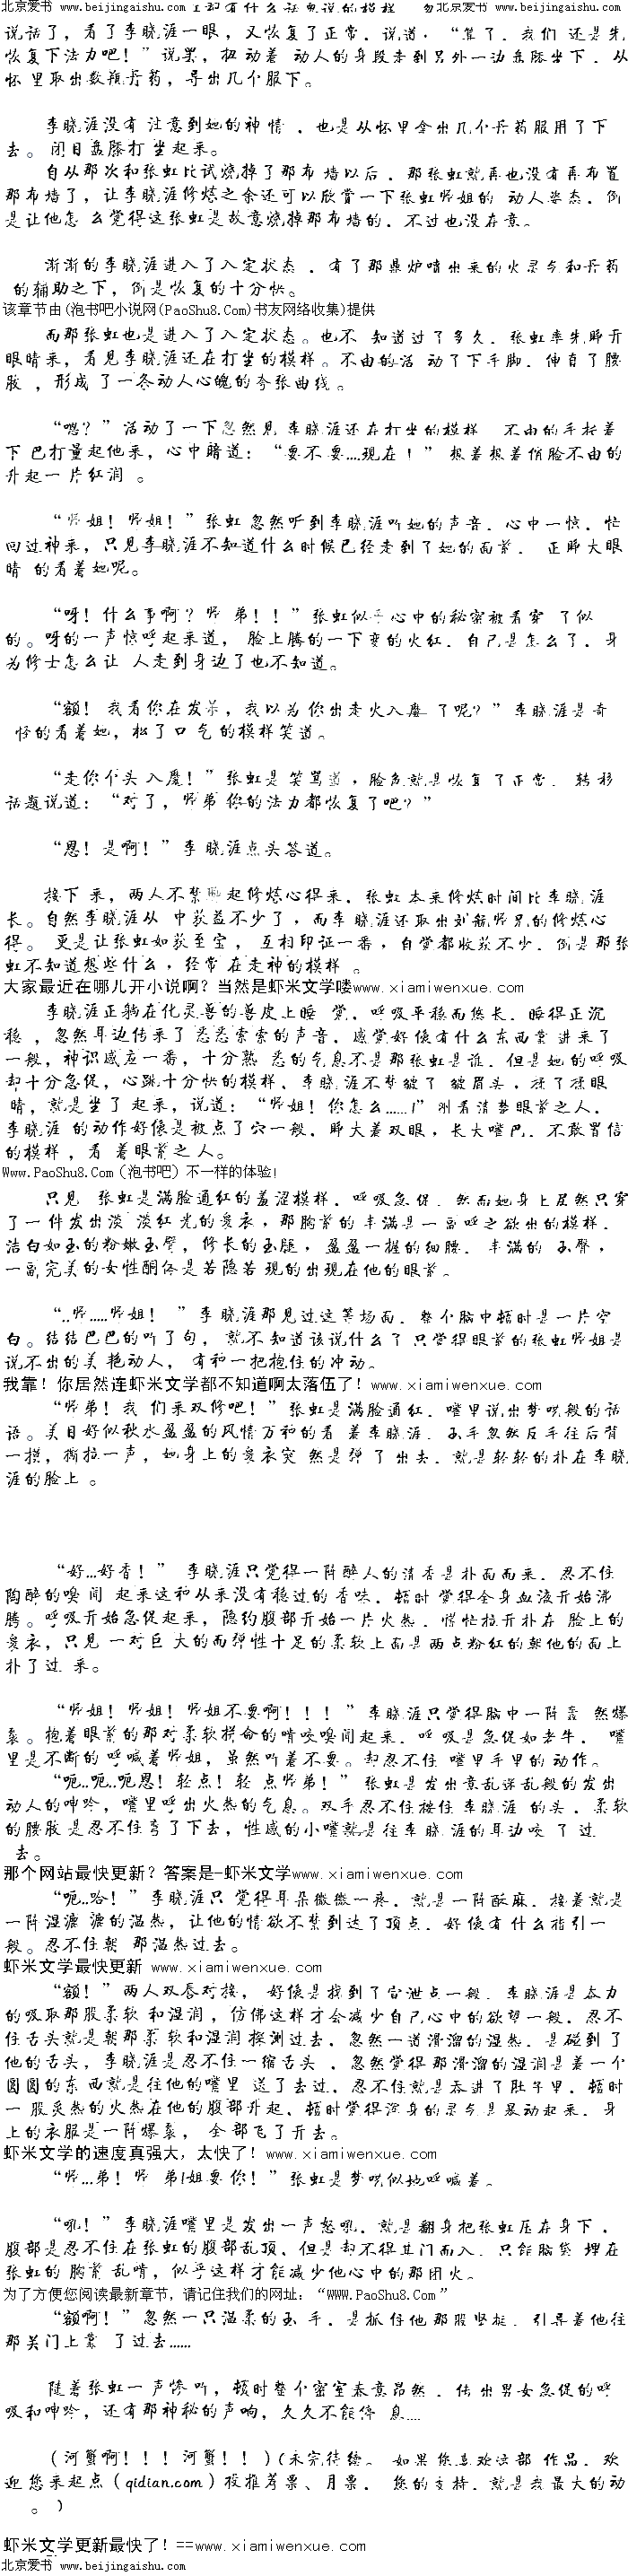 北京爱书 www.beijingaishu.com
说话了，看了李晓涯一眼，又恢复了正常，说道，“算了，我们 还是先
恢复下法力吧！”说罢，扭动着 动人的身段走到另外一边盘膝坐下，从
怀 里取出数瓶丹药，导出几个服下。
李晓涯没有 注意到她的神 情 ，也是从怀里拿出几个丹药服用了下
去。 闭目盘膝打 坐起来。
自从那次和张虹比试烧掉了那布 墙以后，那张虹就再也没有再布置
那布墙了，让李晓涯修炼之余还可以欣赏一下张虹师姐的 动人姿态，倒
是让他怎 么觉得这张虹是故意烧掉那布墙的，不过也没在意。
渐渐的李晓涯进入了入定状态 ，有了那鼎炉喷出来的火灵气和丹药
的辅助之下，倒是恢复的十分快。
该章节由(泡书吧小说网(PaoShu8.Com)书友网络收集)提供
而那张虹也是进入了入定状态。也不 知道过了多久，张虹率先睁开
眼睛来，看见李晓涯还在打坐的模样。不由的活 动了下手脚，伸直了腰
肢 ，形成 了一条动人心魄的夸张曲线。
“嗯？”活动了一下忽然见 李晓涯还在打坐的模样 不由的手托着
下 巴打量起他来，心中暗道：“要不要....现在！” 想着想着俏脸不由的
升起一片红润 。
“师姐！师姐！”张虹 忽然听到李晓涯叫她的声音，心中一惊，忙
回过神来，只见李晓涯不知道什么时候已经走到了她的面前， 正睁大眼
睛 的看着她呢。
“呀！什么事啊？师 弟！！”张虹似乎心中的秘密被看穿 了似
的。呀的一声惊呼起来道， 脸上腾的一下变的火红，自己是怎么了，身
为修士怎么让 人走到身边了也不知道。
“额！ 我看你在发呆，我以为 你出走火入魔 了呢？”李晓涯是奇
怪的看着她，松了口 气 的模样笑道。
“走你个头 入魔！”张虹是 笑骂道，脸色就是恢复了正常， 转移
话题说道：“对了，师弟 你的法力都恢复了吧？”
“恩！是啊！”李 晓涯点头答道。
接下 来，两人不禁聊起修炼心得来，张虹 本来修炼时间比李晓涯
长。自然李晓涯从 中获益不少了，而李 晓涯还取出刘航师兄的修炼心
得。 更是让张虹如获至宝， 互相印证一番，自觉都收获不少，倒是那张
虹不知道想些什么，经常 在走神的模样 。
大家最近在哪儿开小说啊？当然是虾米文学喽www.xiamiwenxue.com
李晓涯正躺在化灵兽的兽皮上睡 觉，呼吸平稳而悠长，睡得正沉
稳 ，忽然耳边传来了悉悉索索的声音，感觉好像有什么东西靠 进来了
一般，神识感应一番，十分熟 悉的气息不是那张虹是谁，但是她的呼吸
却十分急促，心跳十分快的模样，李晓涯不禁皱了 皱眉头，揉了揉眼
睛，就是坐了 起来，说道：“师姐！你怎么......！”刚看清楚眼前之人，
李晓涯 的动作好像是被点了穴一般，睁大着双眼，长大嘴巴，不敢置信
的模样，看 着眼前之人。
Www.PaoShu8.Com（泡书吧）不一样的体验！
只见 张虹是满脸通红的羞涩模样，呼吸急促，然而她身上居然只穿
了一件发出淡 淡红光的亵衣，那胸前的丰满是一副呼之欲出的模样，
洁白如玉的粉嫩玉臂，修长的玉腿，盈盈一握的细腰， 丰满的 玉臀，
一副完美的女性酮体是若隐若 现的出现在他的眼前。
“..师.....师姐！ ”李晓涯那见过这等场面，整个脑中顿时是一片空
白。结结巴巴的叫了句， 就不知道该说什么了 只觉得眼前的张虹师姐是
说不出的美 艳动人， 有种一把抱住的冲动。
我靠！你居然连虾米文学都不知道啊太落伍了！www.xiamiwenxue.com
“师弟！我 们来双修吧！”张虹是满脸通红，嘴里说出梦呓般的话
语。美目好似秋水盈盈的风情万种的看 着李晓涯， 玉手忽然反手往后背
一摸，撕拉一声，她身上的亵衣突 然是弹了出去，就是轻轻的扑在李晓
涯的脸上 。
“好...好香！” 李晓涯只觉得一阵醉人的清香是扑面而来，忍不住
陶醉的嗅 闻 起来这种从来没有稳过的香味，顿时觉得全身血液开始沸
腾。呼吸开始急促起来，隐约腹部开始一片火热，慌忙拉开扑在 脸上的
亵衣，只见 一对巨 大的而弹性十足的柔软上面是两点粉红的朝他的面上
扑了过 来。
“师姐！师姐！师姐不要啊！！！”李晓涯只觉得脑中一阵轰 然爆
裂。抱着眼前的那对柔软拼命的啃咬嗅闻起来，呼 吸是急促如老牛， 嘴
里是不断的呼喊着师姐，虽然叫着不要。却忍不住 嘴里手里的动作。
“呃..呃..呃恩！轻点！轻 点师弟！”张虹是发出意乱迷乱般的发出
动人的呻吟，嘴里呼出火热的气息。双手忍不住按住 李晓涯 的头，柔软
的腰肢是忍不住弯了下去，性感的小嘴就是往李晓 涯的耳边咬 了 过
去。
那个网站最快更新？答案是-虾米文学www.xiamiwenxue.com
“呃..哈！”李晓涯只 觉得耳朵微微一疼，就是一阵酥麻，接着就是
一阵湿漉 漉的温热，让他的情欲不禁到达了顶点，好像有什么指引一
般。忍不住朝 那温热过去。
虾米文学最快更新 www.xiamiwenxue.com
“额！”两人双唇对接， 好像是找到了宣泄点一般，李晓涯是大力
的吸取那股柔软 和湿润，仿佛这样才会减少自己心中的欲望一般，忍不
住舌头就是朝那柔 软和湿润 探测过去，忽然一道滑溜的湿热，是碰到了
他的舌头，李晓涯是忍不住一缩舌头 ，忽然觉得那滑溜的湿润是卷一个
圆圆的东西就是往他的嘴里 送了去过，忍不住就是吞进了肚子里，顿时
一 股炙热的火热在他的腹部升起，顿时觉得浑身的灵气是暴动起来，身
上的衣服是一阵爆裂， 全部飞了开去。
虾米文学的速度真强大，太快了！www.xiamiwenxue.com
“师...弟！师 弟！姐要你！”张虹是梦呓似地呼喊着。
“吼！”李晓涯嘴里是发出一声怒吼，就是翻身把张虹压在身下，
腹部是忍不住在张虹的腹部乱顶，但是却不得其门而入，只能脑袋 埋在
张虹的 胸前 乱啃，似乎这样才能减少他心中的那团火。
为了方便您阅读最新章节，请记住我们的网址：“WWW.PaoShu8.Com”
“额啊！”忽然一只温柔的玉 手，是抓住他那股坚挺，引导着他往
那关门上靠 了过去......
随着张虹一声惨叫，顿时整个密室春意昂然，传出男女急促的呼
吸和呻吟，还有那神秘的声响，久久不能停 息....
（河蟹啊！！！河蟹！！）(未完待续。 如果您喜欢这部 作品，欢
迎 您来起点（qidian.com）投推荐票、月票， 您的支持，就是我最大的动
。）
虾米文学更新最快了！==www.xiamiwenxue.com
北京爱书 www.beijingaishu.com